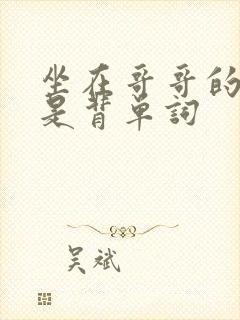 坐在哥哥的
是背单詞
吴斌